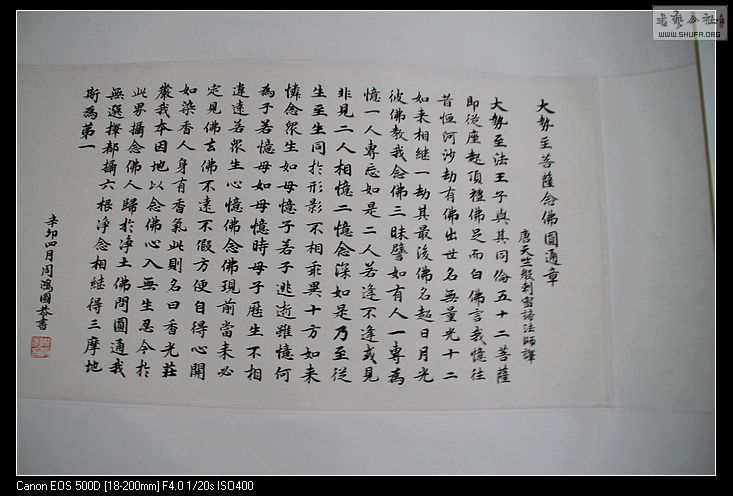 大勢至菩薩念佛圓通章
唐天竺般剌密諦法師譯
大勢至法王子與其同倫五十二菩薩
即從座起頂禮佛足而白佛言我憶往
昔恒河沙劫有佛出世名無量光十二
如来相繼一劫其最後佛名超日月光
彼佛教我念佛三昧譬如有人一專為
憶一人專忘如是二人若逢不逢或見
非見二人相憶二憶念深如是乃至從
生至生同於形影不相乖異十方如来
憐念眾生如母憶子若子逃逝雖憶何
為子若憶母如母憶時母子歷生不相
違遠若眾生心憶佛念佛現前當来必
定見佛去佛不遠不假方便自得心開
如染香人身有香氣此則名曰香光莊
嚴我本因地以念佛心入無生忍今於
此界攝念佛人歸於淨土佛問圓通我
無選擇都攝六根淨念相继得三摩地
斯為第一
辛卯四月周鴻圖恭書
書藝公社
WWW.SHUFA.ORG
Canon EOS 500D [18-200mm] F4.0 1/20s ISO400